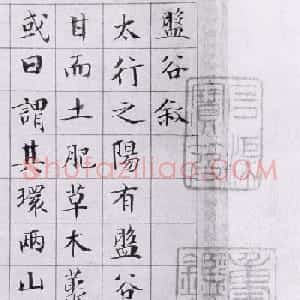 盤谷敘
太行之陽有盤谷
甘而土肥草木叢
或曰謂其環兩山
shufaziliao.com